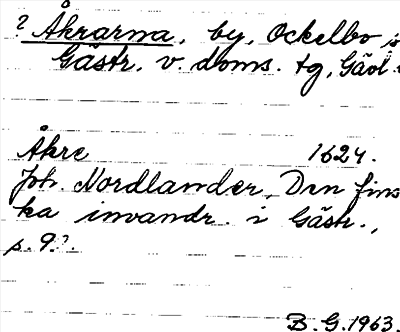 ? Åkrarna, by, Ockelbo s
Gästr. v. doms. tg, Gävl.
Åkre 1624.
Joh. Nordlander, Den fins
ka invandr. i Gästr.,
s. 9?.
B. G. 1963.